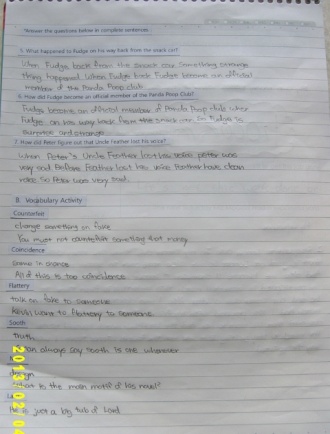 *Answer the questions below in complete sentences
5. What happened to Fudge on his way back from the snack car?
When Fudge back from the snack car. Something strange
thing happened. When Fudge back Fudge became an official
member of the Panda Poop club.
6. How did Fudge become an official member of the Panda Poop Club?
Fudge become an official member of Panda Poop club when
Fudge on his way back from the snack car. So Fudge is
surprise and strange
7. How did Peter figure out that Uncle Feather lost his voice?
When Peter's Uncle Feather lost his voice peter was
very sad. Before Feather lost his voice Feather have clean
voice. So Peter was very sad.
B. Vocabulary Activity
Counterfeit
change something on fake
You must not counterfeit something that money.
Coincidence
same in chance
All of this is too coincidence
Flattery
talk on fake to someone
Kevin want to flattery to someone
Sooth
truth
always say sooth is one whenever
design
What is the main motif of his novel?
He is just a big tub of Lard
2013 02 04